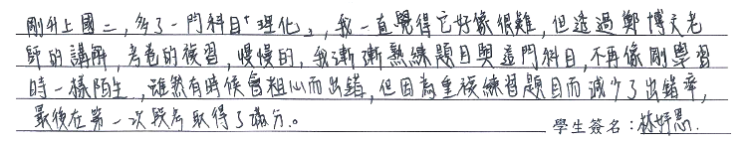 剛升上國二，多了一門科目「理化」，我一直覺得它好像很難，但透過鄭博夫老
師的講解，考卷的複習，慢慢的，我漸漸熟練題目與這門科目，不再像剛學習
時一樣陌生，雖然有時候會粗心而出錯，但因為重複練習題目而減少了出錯率，
最後在第一次段考取得了滿分。 學生簽名：林妤恩